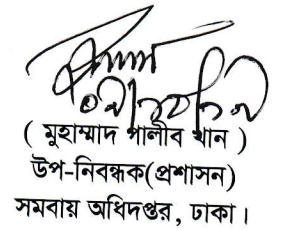 ( মুহাম্মাদ গালীব খান )
উপ-নিবন্ধক(প্রশাসন)
সমবায় অধিদপ্তর, ঢাকা।